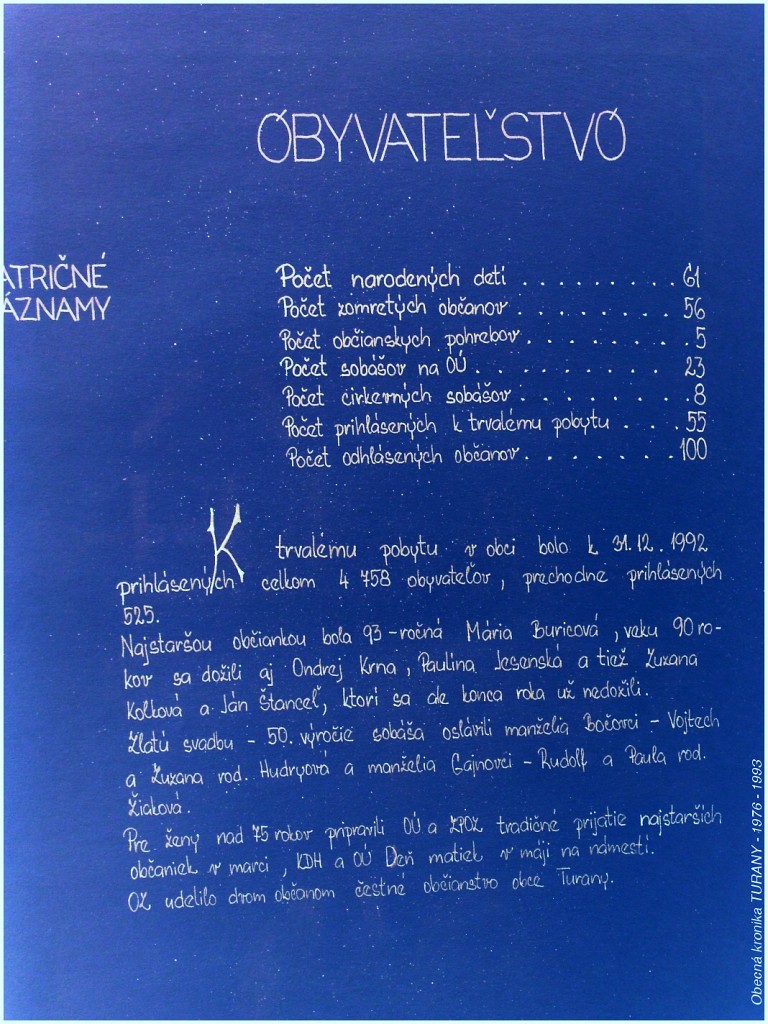 OBYVATEĽSTVO
ATRIČNÉ
ÁZNAMY
Počet narodených detí . . . . . . . . . . 61
Počet zomretých občanov . . . . . . . . 56
Počet občianskych pohrebov . . . . . . . 5
Počet sobášov na OÚ . . . . . . . . . . 23
Počet cirkevných sobášov . . . . . . . . 8
Počet prihlásených k trvalému pobytu . . . 55
Počet odhlásených občanov . . . . . . . 100
K trvalému pobytu v obci bolo k 31.12.1992
prihlásených celkom 4 758 obyvateľov, prechodne prihlásených
525.
Najstaršou občiankou bola 93-ročná Mária Buricová, veku 90 ro-
kov sa dožili aj Ondrej Krna, Paulína Jesenská a tiež Zuzana
Kolková a Ján Štanceľ, ktorí sa ale konca roka už nedožili.
Zlatú svadbu - 50. výročie sobáša oslávili manželia Bočovci - Vojtech
a Zuzana rod. Hudryová a manželia Gajnovci - Rudolf a Paula rod.
Žiaková.
Pre ženy nad 75 rokov pripravili OÚ a ZPOZ tradičné prijatie najstarších
občaniek v marci, KDH a OÚ Deň matiek v máji na námestí.
OZ udelilo dvom občanom čestné občianstvo obce Turany.
Obecná kronika TURANY - 1976 - 1993